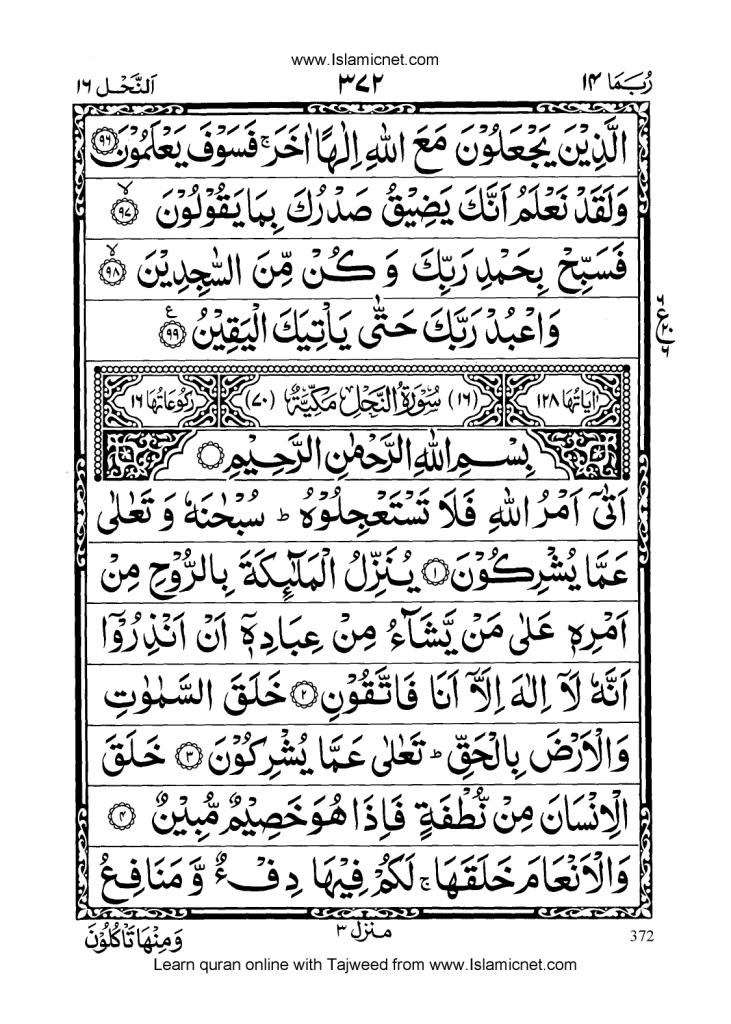 www.Islamicnet.com
رُبَمَا ۱۴ ۳۷۲ اَلنَّحْل ۱۶
الَّذِيْنَ يَجْعَلُوْنَ مَعَ اللّٰهِ اِلٰهًا اٰخَرَ ۚ فَسَوْفَ يَعْلَمُوْنَ ۹۶
وَلَقَدْ نَعْلَمُ اَنَّكَ يَضِيْقُ صَدْرُكَ بِمَا يَقُوْلُوْنَ ۙ ۹۷
فَسَبِّحْ بِحَمْدِ رَبِّكَ وَ كُنْ مِّنَ السّٰجِدِيْنَ ۙ ۹۸
وَاعْبُدْ رَبَّكَ حَتّٰى يَاْتِيَكَ الْيَقِيْنُ ۹۹ ع
۶ ع ۲۰ ۶
اٰيَاتُهَا ۱۲۸ (۱۶) سُوْرَةُ النَّحْلِ مَكِّيَّةٌ (۷۰) رُكُوْعَاتُهَا ۱۶
بِسْمِ اللّٰهِ الرَّحْمٰنِ الرَّحِيْمِ
اَتٰۤى اَمْرُ اللّٰهِ فَلَا تَسْتَعْجِلُوْهُ ؕ سُبْحٰنَهٗ وَ تَعٰلٰى
عَمَّا يُشْرِكُوْنَ ۱ يُنَزِّلُ الْمَلٰٓئِكَةَ بِالرُّوْحِ مِنْ
اَمْرِهٖ عَلٰى مَنْ يَّشَآءُ مِنْ عِبَادِهٖۤ اَنْ اَنْذِرُوْۤا
اَنَّهٗ لَاۤ اِلٰهَ اِلَّاۤ اَنَا فَاتَّقُوْنِ ۲ خَلَقَ السَّمٰوٰتِ
وَالْاَرْضَ بِالْحَقِّ ؕ تَعٰلٰى عَمَّا يُشْرِكُوْنَ ۳ خَلَقَ
الْاِنْسَانَ مِنْ نُّطْفَةٍ فَاِذَا هُوَ خَصِيْمٌ مُّبِيْنٌ ۴
وَالْاَنْعَامَ خَلَقَهَا ۚ لَكُمْ فِيْهَا دِفْءٌ وَّ مَنَافِعُ
372 منزل ۳ وَمِنْهَا تَاْكُلُوْنَ
Learn quran online with Tajweed from www.Islamicnet.com